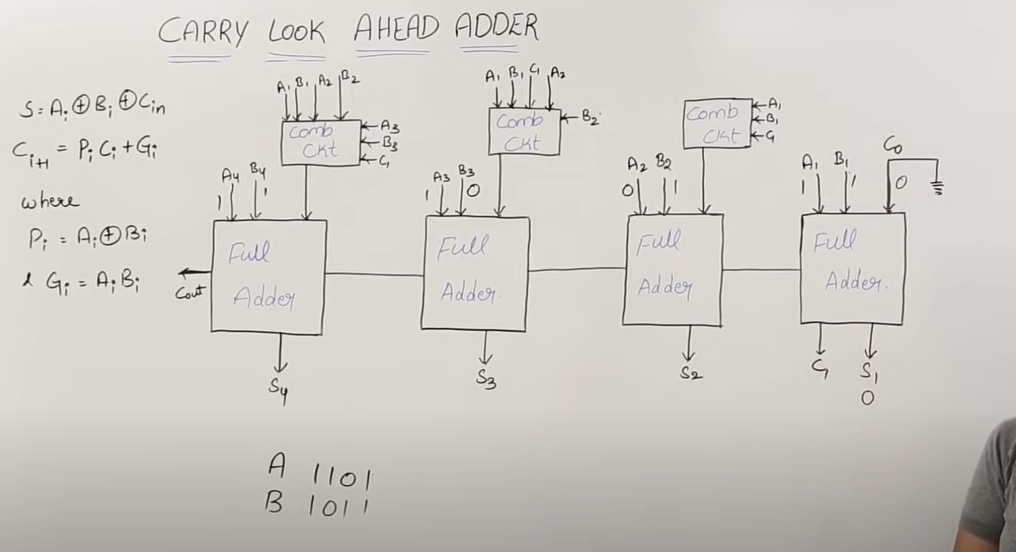 CARRY LOOK AHEAD ADDER
S = Ai ⊕ Bi ⊕ Cin
Ci+1 = Pi Ci + Gi
where
Pi = Ai ⊕ Bi
& Gi = Ai Bi
A1 B1 A2 B2
Comb
Ckt
A3
B3
C1
A4 B4
1 1
Full
Adder
Cout
S4
A1 B1 C1 A2
Comb
Ckt
B2
A3 B3
1 0
Full
Adder
S3
Comb
Ckt
A1
B1
C1
A2 B2
0 1
Full
Adder
S2
A1 B1 C0
1 1 0
Full
Adder
C1 S1
0
A 1101
B 1011